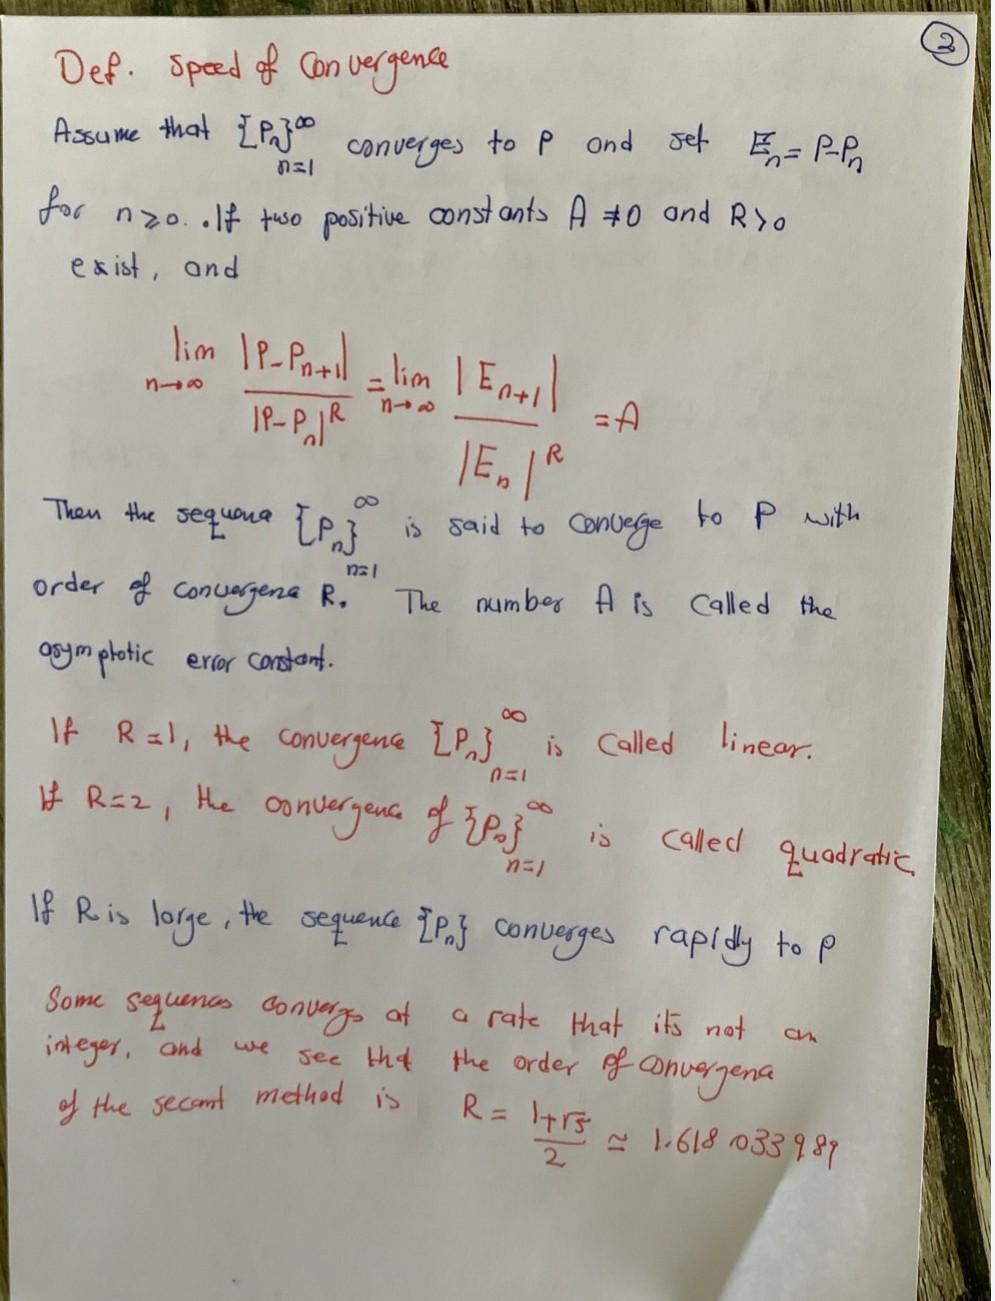 2
Def. Speed of Convergence
Assume that {Pₙ}∞ n=1 converges to P and set Eₙ = P-Pₙ
for n≥0. . If two positive constants A ≠0 and R>0
exist, and
lim n→∞ |P-Pₙ₊₁| / |P-Pₙ|ᴿ = lim n→∞ |Eₙ₊₁| / |Eₙ|ᴿ = A
Then the sequena {Pₙ}∞ n=1 is said to converge to P with
order of convergena R. The number A is called the
asymptotic error constant.
If R=1, the convergence {Pₙ}∞ n=1 is called linear.
If R=2, the convergenc of {Pₙ}∞ n=1 is called quadratic
If R is large, the sequence {Pₙ} converges rapidly to P
Some sequences converge at a rate that it's not an
integer, and we see that the order of convergena
of the secant method is R = 1+√5 / 2 ≃ 1.618033989